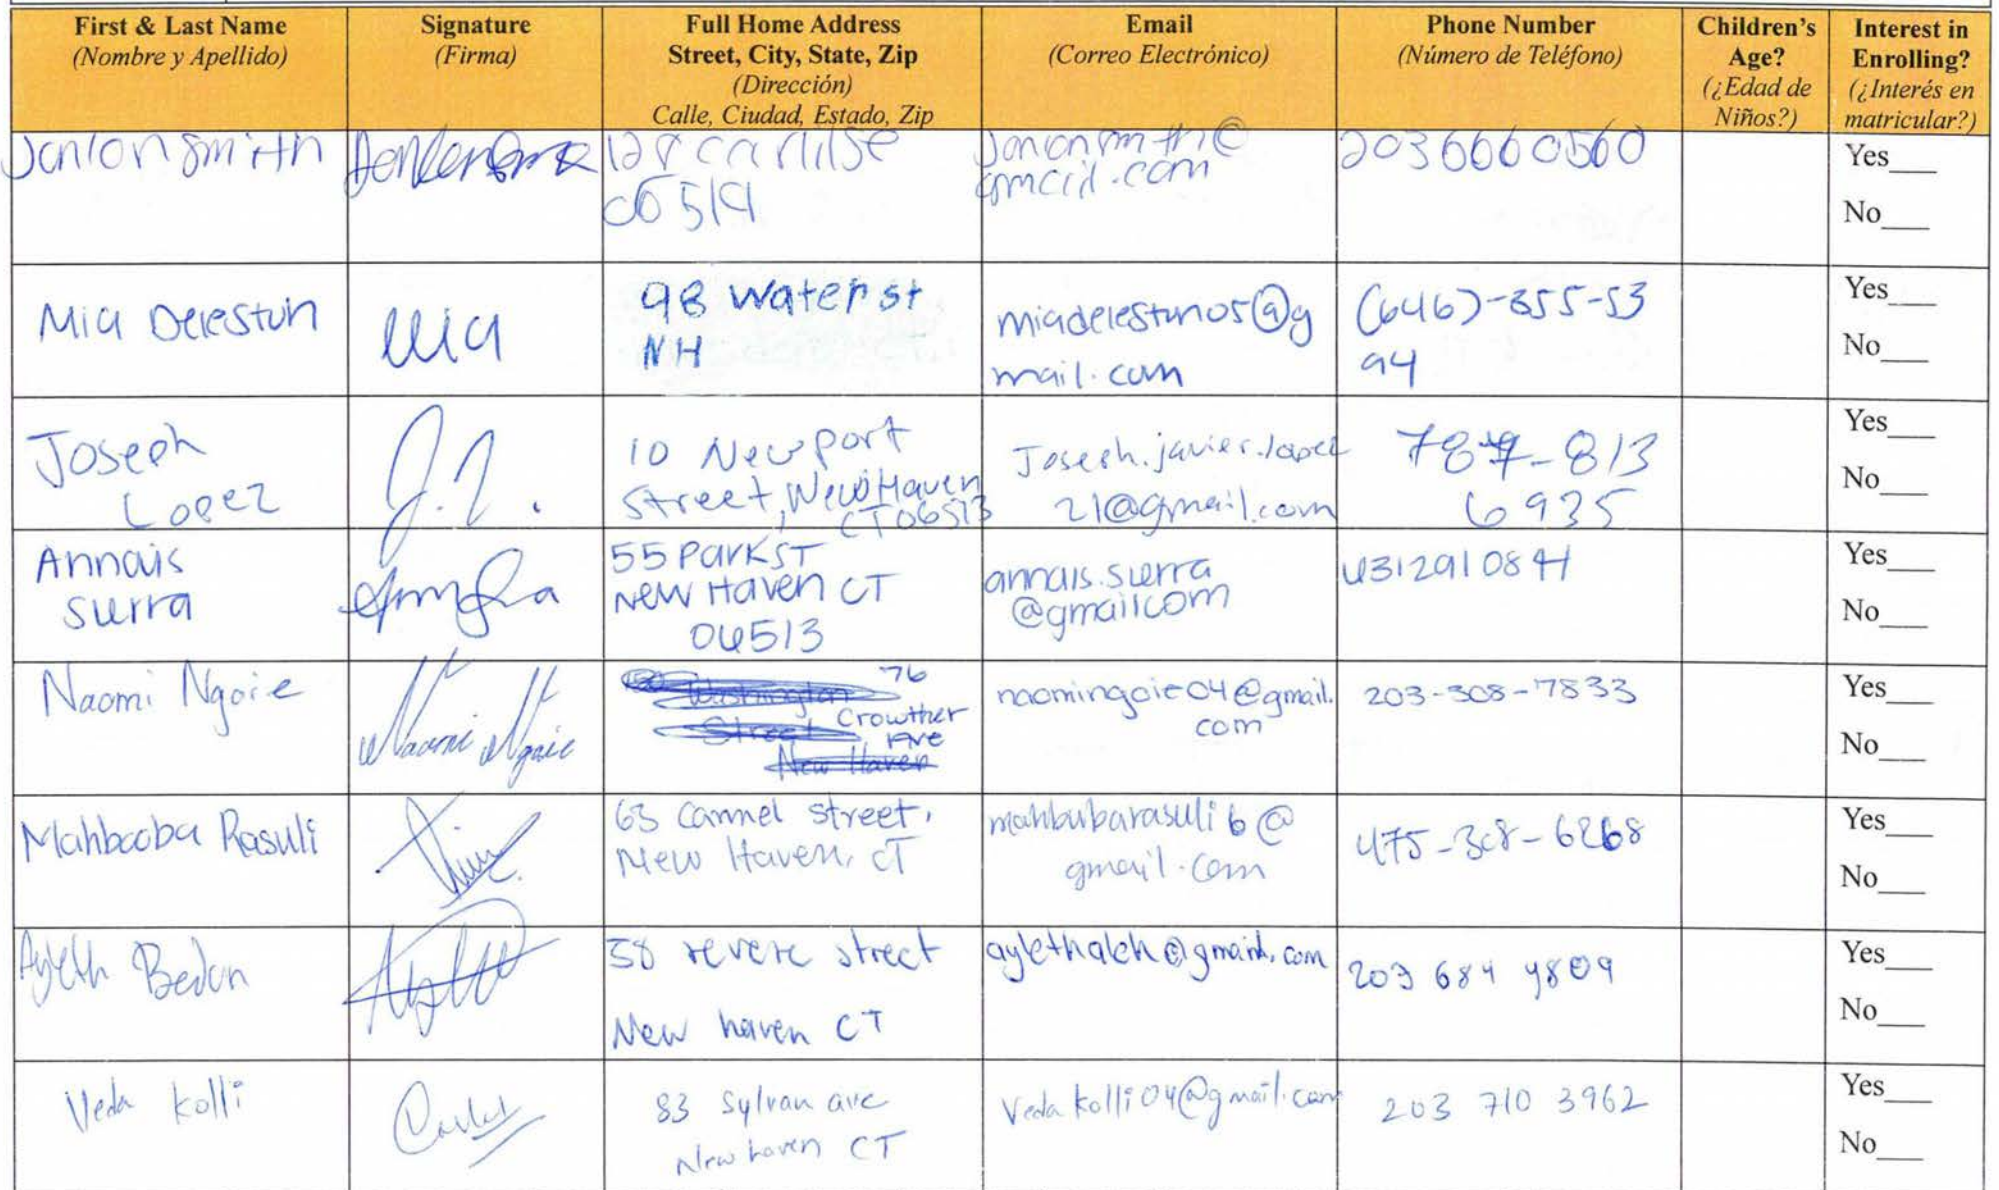 First & Last Name
(Nombre y Apellido)
Signature
(Firma)
Full Home Address
Street, City, State, Zip
(Dirección)
Calle, Ciudad, Estado, Zip
Email
(Correo Electrónico)
Phone Number
(Número de Teléfono)
Children's
Age?
(¿Edad de
Niños?)
Interest in
Enrolling?
(¿Interés en
matricular?)
Smith
06519
gmail.com
2036660560
Yes___
No___
Mia Delestin
Mia
98 Water st
NH
miadelestin05@g
mail.com
(646)-355-53
94
Yes___
No___
Joseph
Lopez
J.L.
10 Newport
Street, New Haven
CT 06513
Joseph.javier.lopez
21@gmail.com
787-813
6935
Yes___
No___
Annais
Sierra
55 Park ST
New Haven CT
06513
annais.sierra
@gmailcom
6312910841
Yes___
No___
Naomi Ngoie
Naomi Ngoie
76
Washington
Street Crowther
Ave
New Haven
naomingoie04@gmail.
com
203-308-7833
Yes___
No___
Mahbooba Rasuli
63 Cannel street,
New Haven, CT
mahbubarasuli6@
gmail.com
475-308-6268
Yes___
No___
Ayleth Bedon
38 revere street
New haven CT
aylethaleh@gmail.com
203 684 9809
Yes___
No___
Veda Kolli
83 Sylvan ave
New haven CT
Vedakolli04@gmail.com
203 710 3962
Yes___
No___